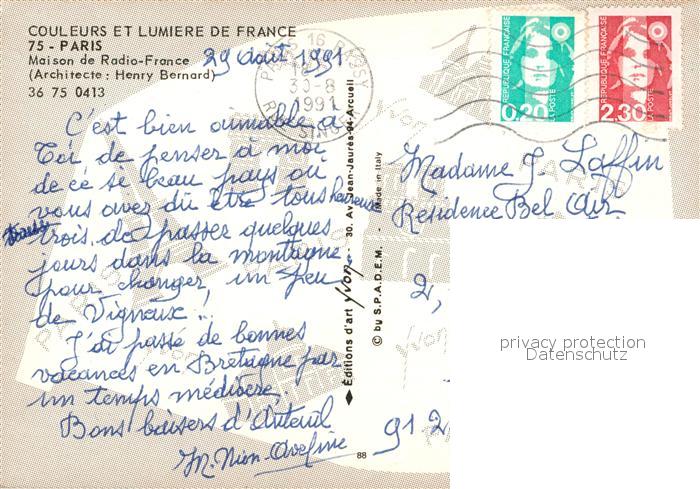 COULEURS ET LUMIERE DE FRANCE
75 - PARIS
Maison de Radio-France
(Architecte : Henry Bernard)
36 75 0413
29 Août 1991
C'est bien aimable à
Toi de penser à moi
de ce si beau pays où
vous avez dû être tous heureuse
trois de passer quelques
jours dans la montagne
pour changer, un peu
de Vigneux !..
J'ai passé de bonnes
vacances en Bretagne par
un temps médiocre.
Bons baisers d'Auteuil
M. Nion-Aveline
88
Editions d'art yvon - 30, Av. Jean-Jaurès-94-Arcueil
© by S.P.A.D.E.M. - Made in Italy
PARIS 16
30-8
1991
REPUBLIQUE FRANÇAISE
0,20
LA POSTE
REPUBLIQUE FRANÇAISE
2,30
LA POSTE
Madame J. Laffin
Résidence Bel Air
2,
91 2
privacy protection
Datenschutz